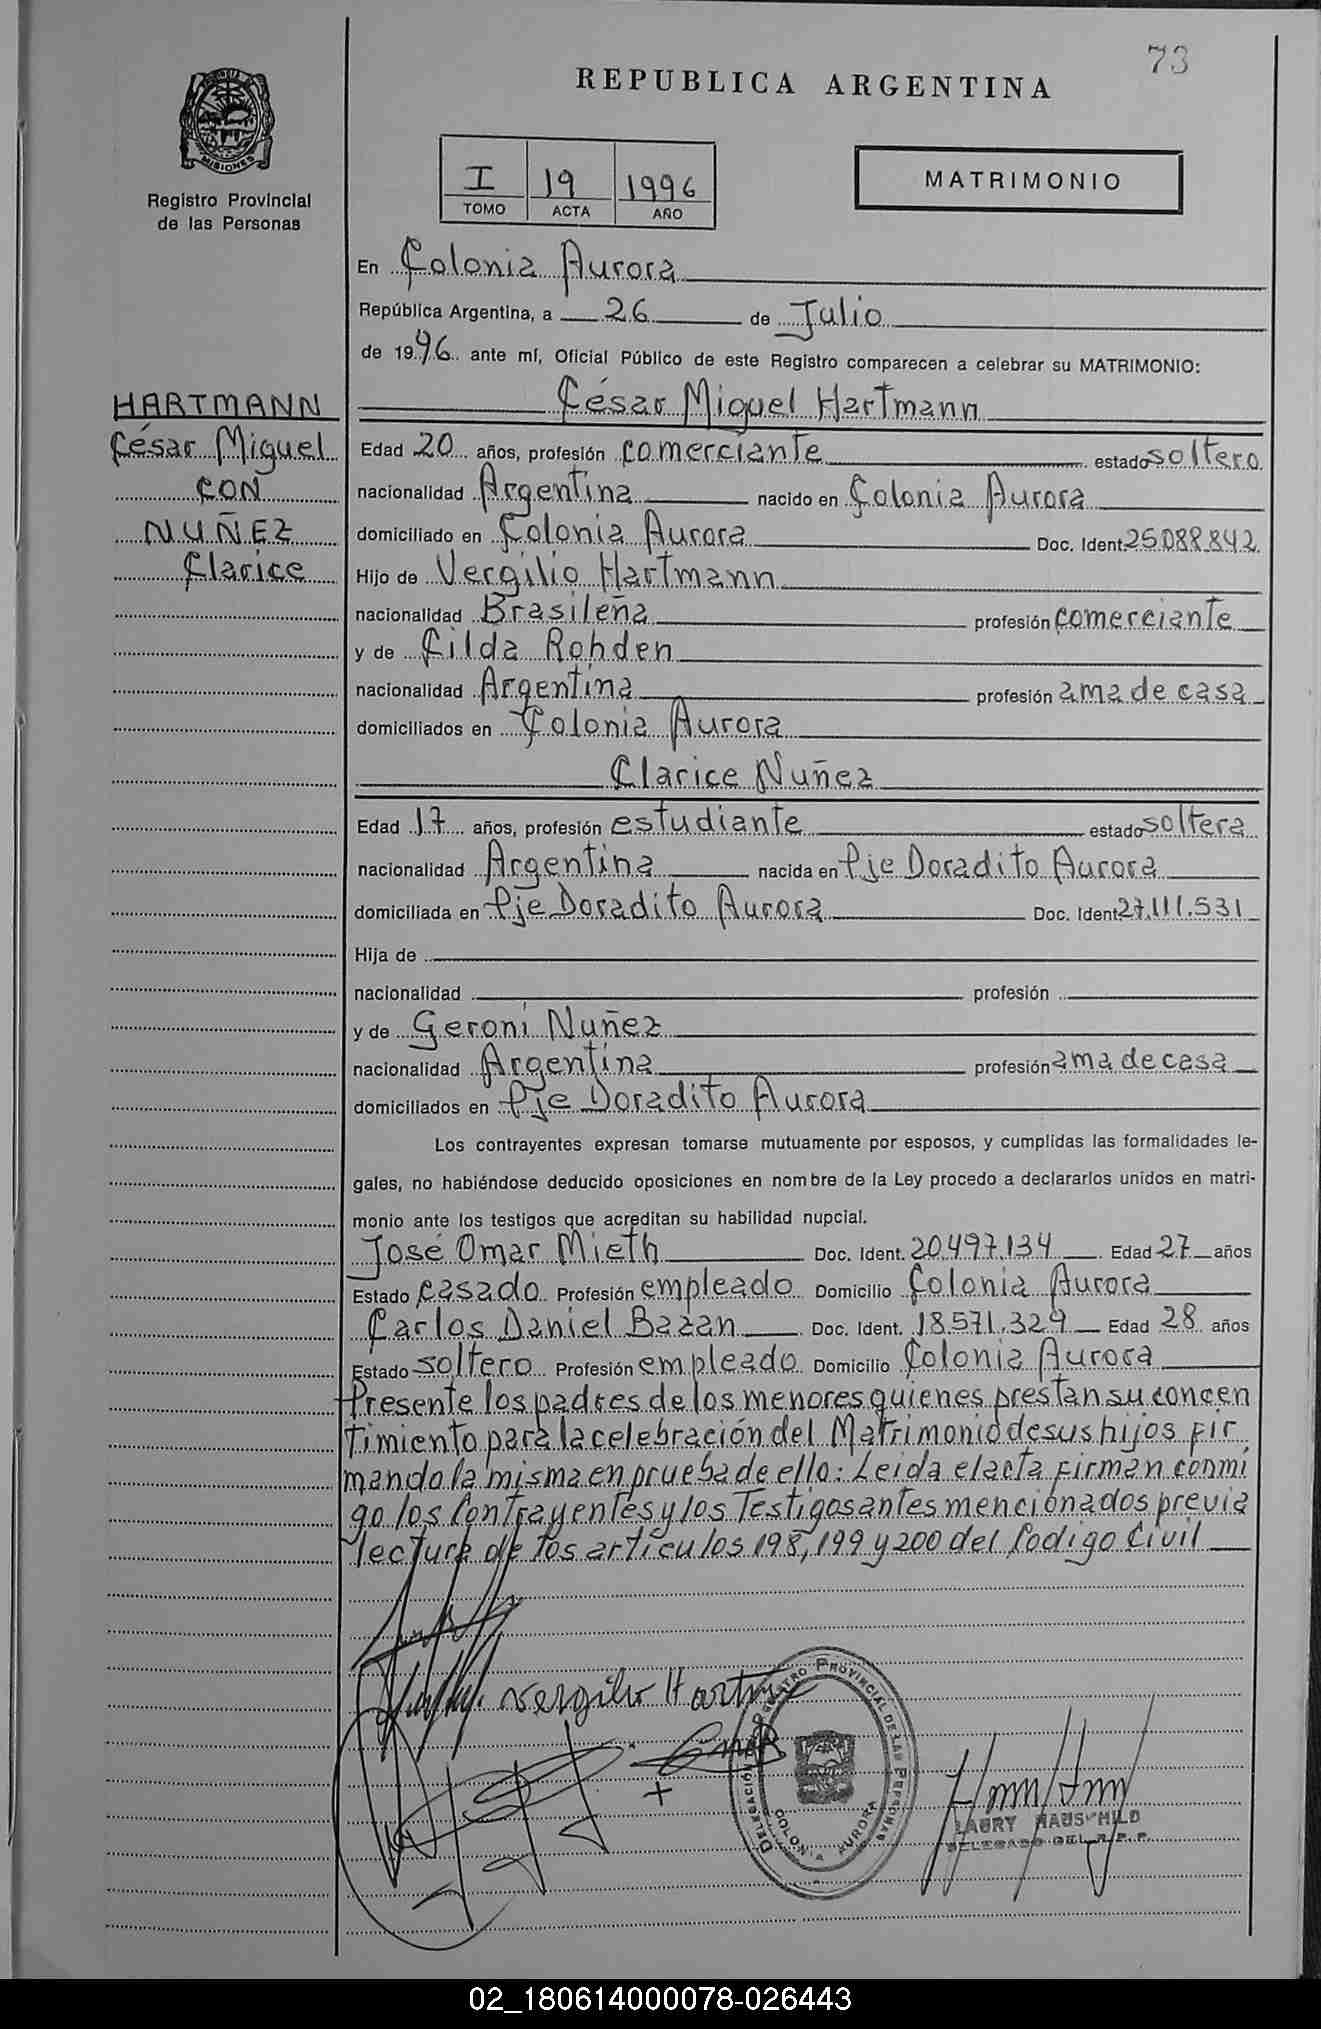 73
REPUBLICA ARGENTINA
MISIONES
Registro Provincial
de las Personas
I 19 1996
TOMO ACTA AÑO
MATRIMONIO
En Colonia Aurora
República Argentina, a 26 de Julio
de 1996 ante mí, Oficial Público de este Registro comparecen a celebrar su MATRIMONIO:
HARTMANN
César Miguel
CON
NUÑEZ
Clarice
César Miguel Hartmann
Edad 20 años, profesión comerciante estado soltero
nacionalidad Argentina nacido en Colonia Aurora
domiciliado en Colonia Aurora Doc. Ident. 25.088.842
Hijo de Vergilio Hartmann
nacionalidad Brasileña profesión comerciante
y de Cilda Rohden
nacionalidad Argentina profesión ama de casa
domiciliados en Colonia Aurora
Clarice Nuñez
Edad 17 años, profesión estudiante estado soltera
nacionalidad Argentina nacida en Pje Doradito Aurora
domiciliada en Pje Doradito Aurora Doc. Ident 27.111.531
Hija de
nacionalidad profesión
y de Geroni Nuñez
nacionalidad Argentina profesión ama de casa
domiciliados en Pje Doradito Aurora
Los contrayentes expresan tomarse mutuamente por esposos, y cumplidas las formalidades le-
gales, no habiéndose deducido oposiciones en nombre de la Ley procedo a declararlos unidos en matri-
monio ante los testigos que acreditan su habilidad nupcial.
José Omar Mieth Doc. Ident. 20.497.134 Edad 27 años
Estado casado Profesión empleado Domicilio Colonia Aurora
Carlos Daniel Bazan Doc. Ident. 18.571.329 Edad 28 años
Estado soltero Profesión empleado Domicilio Colonia Aurora
Presente los padres de los menores quienes prestan su concen
timiento para la celebración del Matrimonio de sus hijos fir
mando la misma en prueba de ello: Leida el acta firman conmi
go los Contrayentes y los Testigos antes mencionados previa
lectura de los artículos 198, 199 y 200 del Codigo Civil
Vergilio Hartm
DELEGACIÓN REGISTRO PROVINCIAL DE LAS PERSONAS
COLONIA AURORA
LAURY HAUSCHILD
DELEGADO DEL R. P. P.
02_180614000078-026443